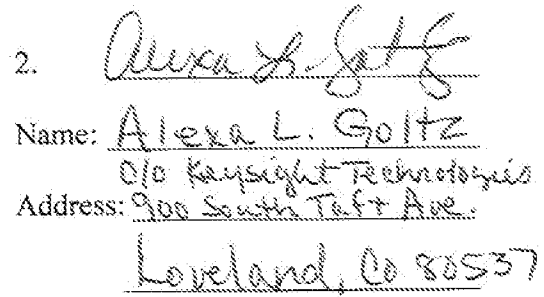 2. Alexa L. Goltz
Name: Alexa L. Goltz
C/o Keysight Technologies
Address: 900 South Taft Ave.
Loveland, Co 80537